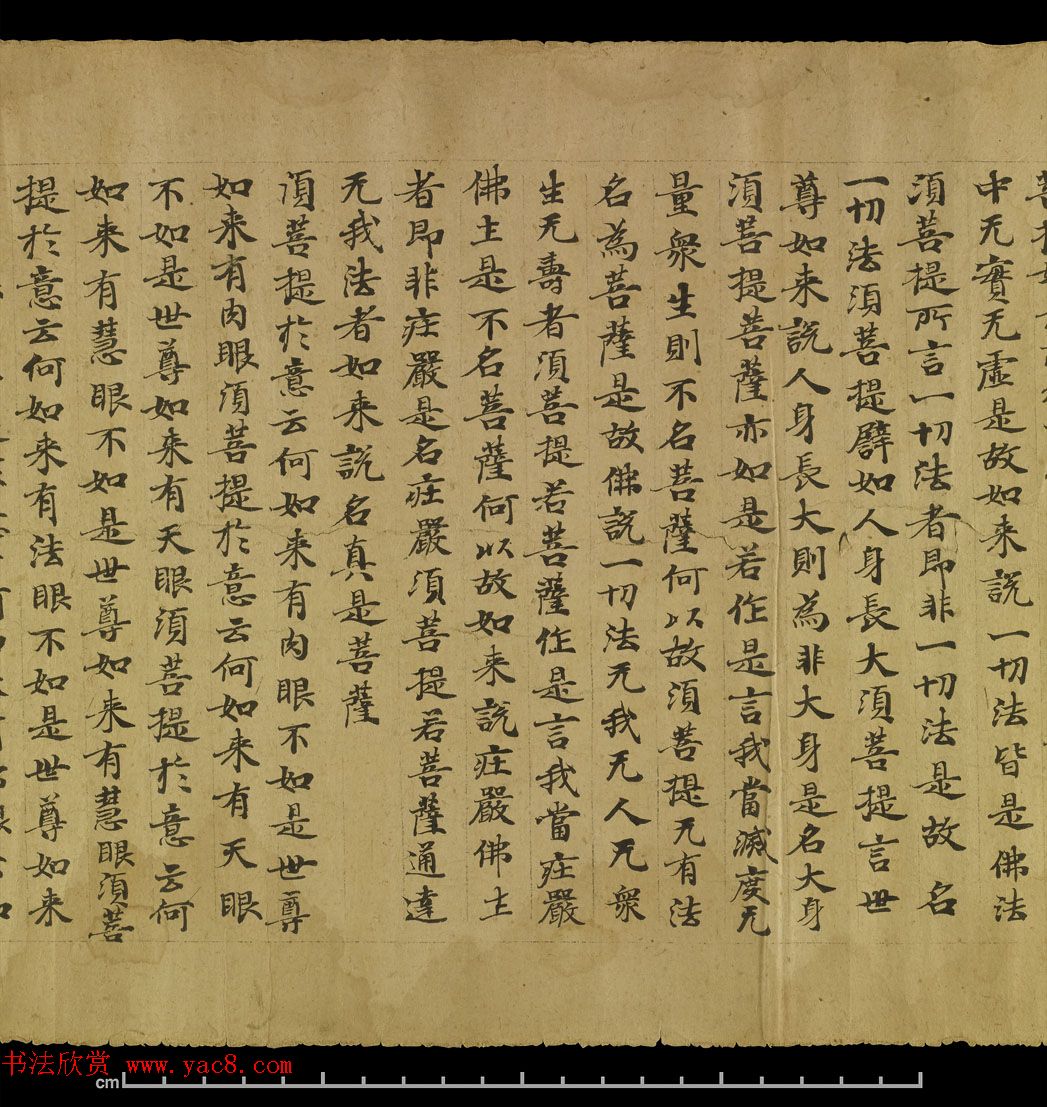 中无實无虛是故如来說一切法皆是佛法
須菩提所言一切法者即非一切法是故名
一切法須菩提譬如人身長大須菩提言世
尊如来說人身長大則為非大身是名大身
須菩提菩薩亦如是若作是言我當滅度无
量衆生則不名菩薩何以故須菩提无有法
名為菩薩是故佛說一切法无我无人无衆
生无壽者須菩提若菩薩作是言我當庄嚴
佛土是不名菩薩何以故如来說庄嚴佛土
者即非庄嚴是名庄嚴須菩提若菩薩通達
无我法者如来說名真是菩薩
須菩提於意云何如来有肉眼不如是世尊
如来有肉眼須菩提於意云何如来有天眼
不如是世尊如来有天眼須菩提於意云何
如来有慧眼不如是世尊如来有慧眼須菩
提於意云何如来有法眼不如是世尊如来
书法欣赏 www.yac8.com
cm